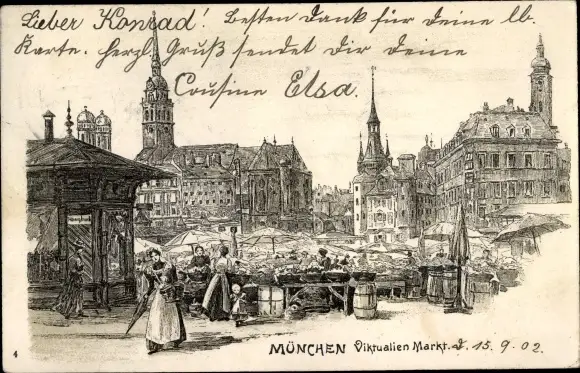 Lieber Konrad! Besten Dank für Deine lb.
Karte. Herzl. Gruß sendet Dir Deine
Cousine Elsa.
4
MÜNCHEN Viktualien Markt. d. 15. 9. 02.